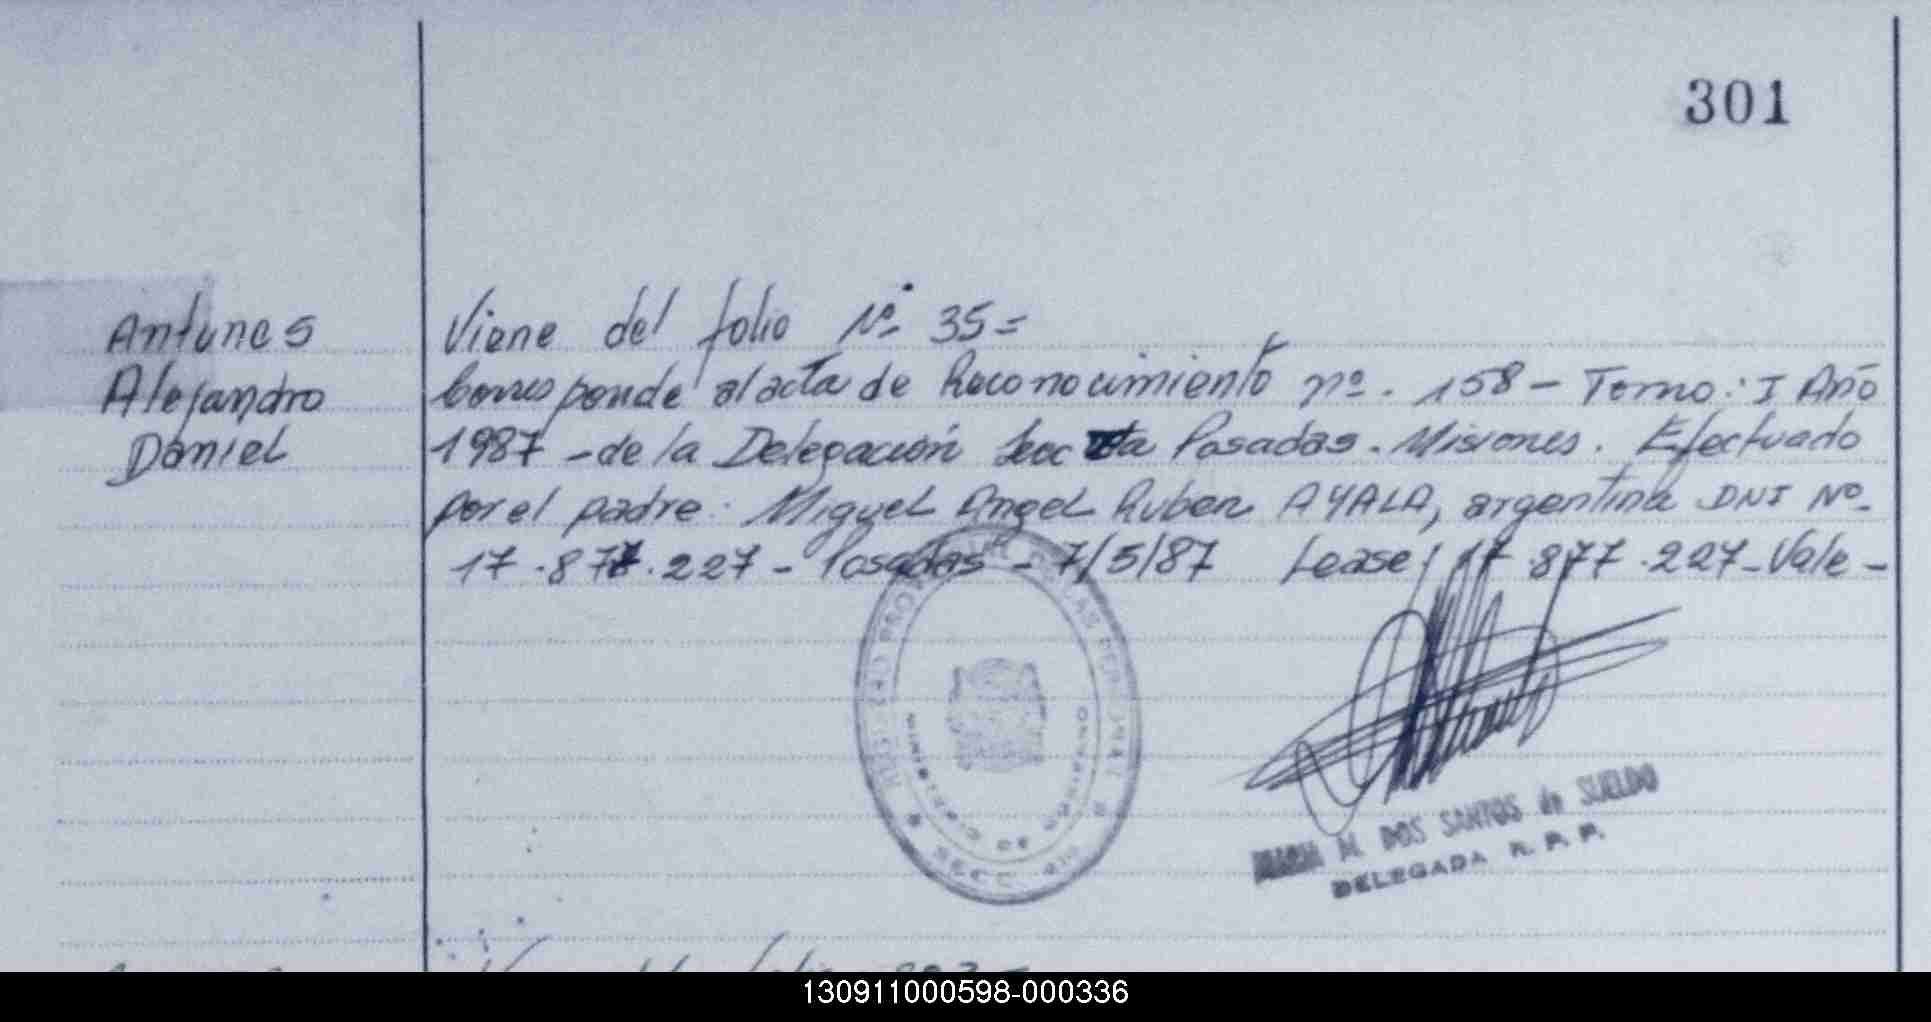 301
Antunes
Alejandro
Daniel
Viene del folio Nº 35=
Corresponde al acta de Reconocimiento nº. 158 - Tomo: I Año
1987 - de la Delegación Secc ta Posadas. Misiones. Efectuado
por el padre: Miguel Angel Ruben AYALA, argentina DNI Nº.
17.877.227 - Posadas - 7/5/87 Lease / 17.877.227 - Vale -
MINISTERIO DE GOBIERNO
MARIA M. DOS SANTOS de SUELDO
DELEGADA R. P. P.
130911000598-000336